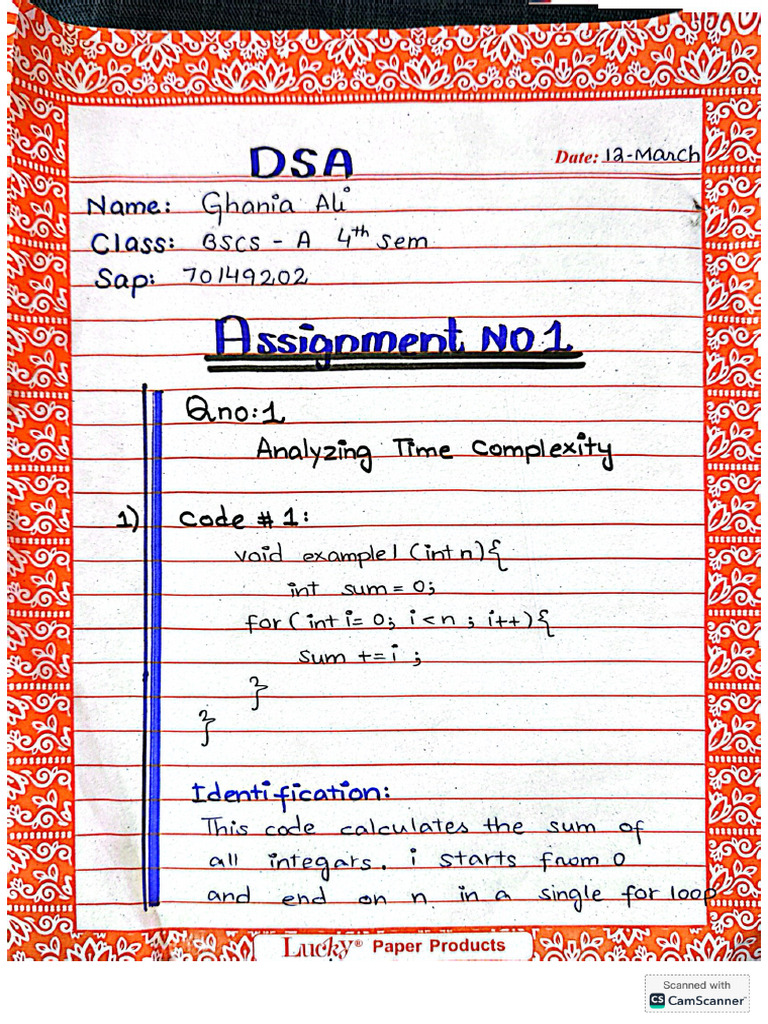 DSA
Date: 12-March
Name: Ghania Ali
Class: BSCS - A 4th sem
Sap: 70149202
Assignment NO 1
Qno:1
Analyzing Time Complexity
1) Code # 1:
void example1 (int n){
int sum = 0;
for ( int i= 0; i < n ; i++){
sum += i ;
}
}
Identification:
This code calculates the sum of
all integars. i starts from 0
and end on n in a single for loop
Lucky® Paper Products
Scanned with
CS CamScanner